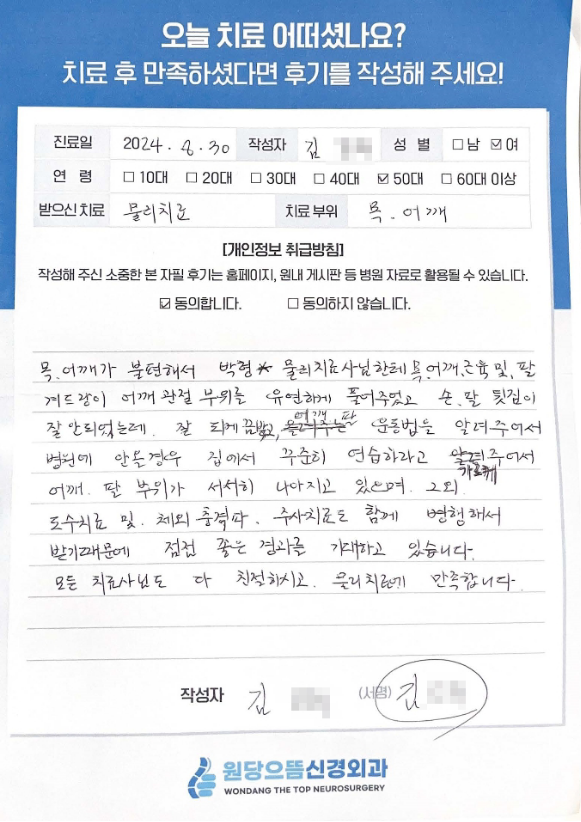 오늘 치료 어떠셨나요?
치료 후 만족하셨다면 후기를 작성해 주세요!
진료일 2024. 8. 30 작성자 김 성 별 □남 ☑여
연 령 □10대 □20대 □30대 □40대 ☑50대 □60대 이상
받으신 치료 물리치료 치료 부위 목. 어깨
[개인정보 취급방침]
작성해 주신 소중한 본 자필 후기는 홈페이지, 원내 게시판 등 병원 자료로 활용될 수 있습니다.
☑동의합니다. □동의하지 않습니다.
목.어깨가 불편해서 박형 물리치료사님한테 목.어깨.근육 및, 팔
겨드랑이 어깨 관절 부위를 유연하게 풀어주었고 손.팔 뒷짐이
잘 안되었는데. 잘 되게끔 어깨 팔 운동법을 알려주어서
병원에 안올경우 집에서 꾸준히 연습하라고 가르켜 주어서
어깨. 팔 부위가 서서히 나아지고 있으며. 그외.
도수치료 및. 체외 충격파. 주사치료도 함께 병행해서
받기때문에 점점 좋은 결과를 기대하고 있습니다.
모든 치료사님도 다 친절하시고. 물리치료에 만족합니다.
작성자 김 (서명) 김
원당으뜸신경외과
WONDANG THE TOP NEUROSURGERY